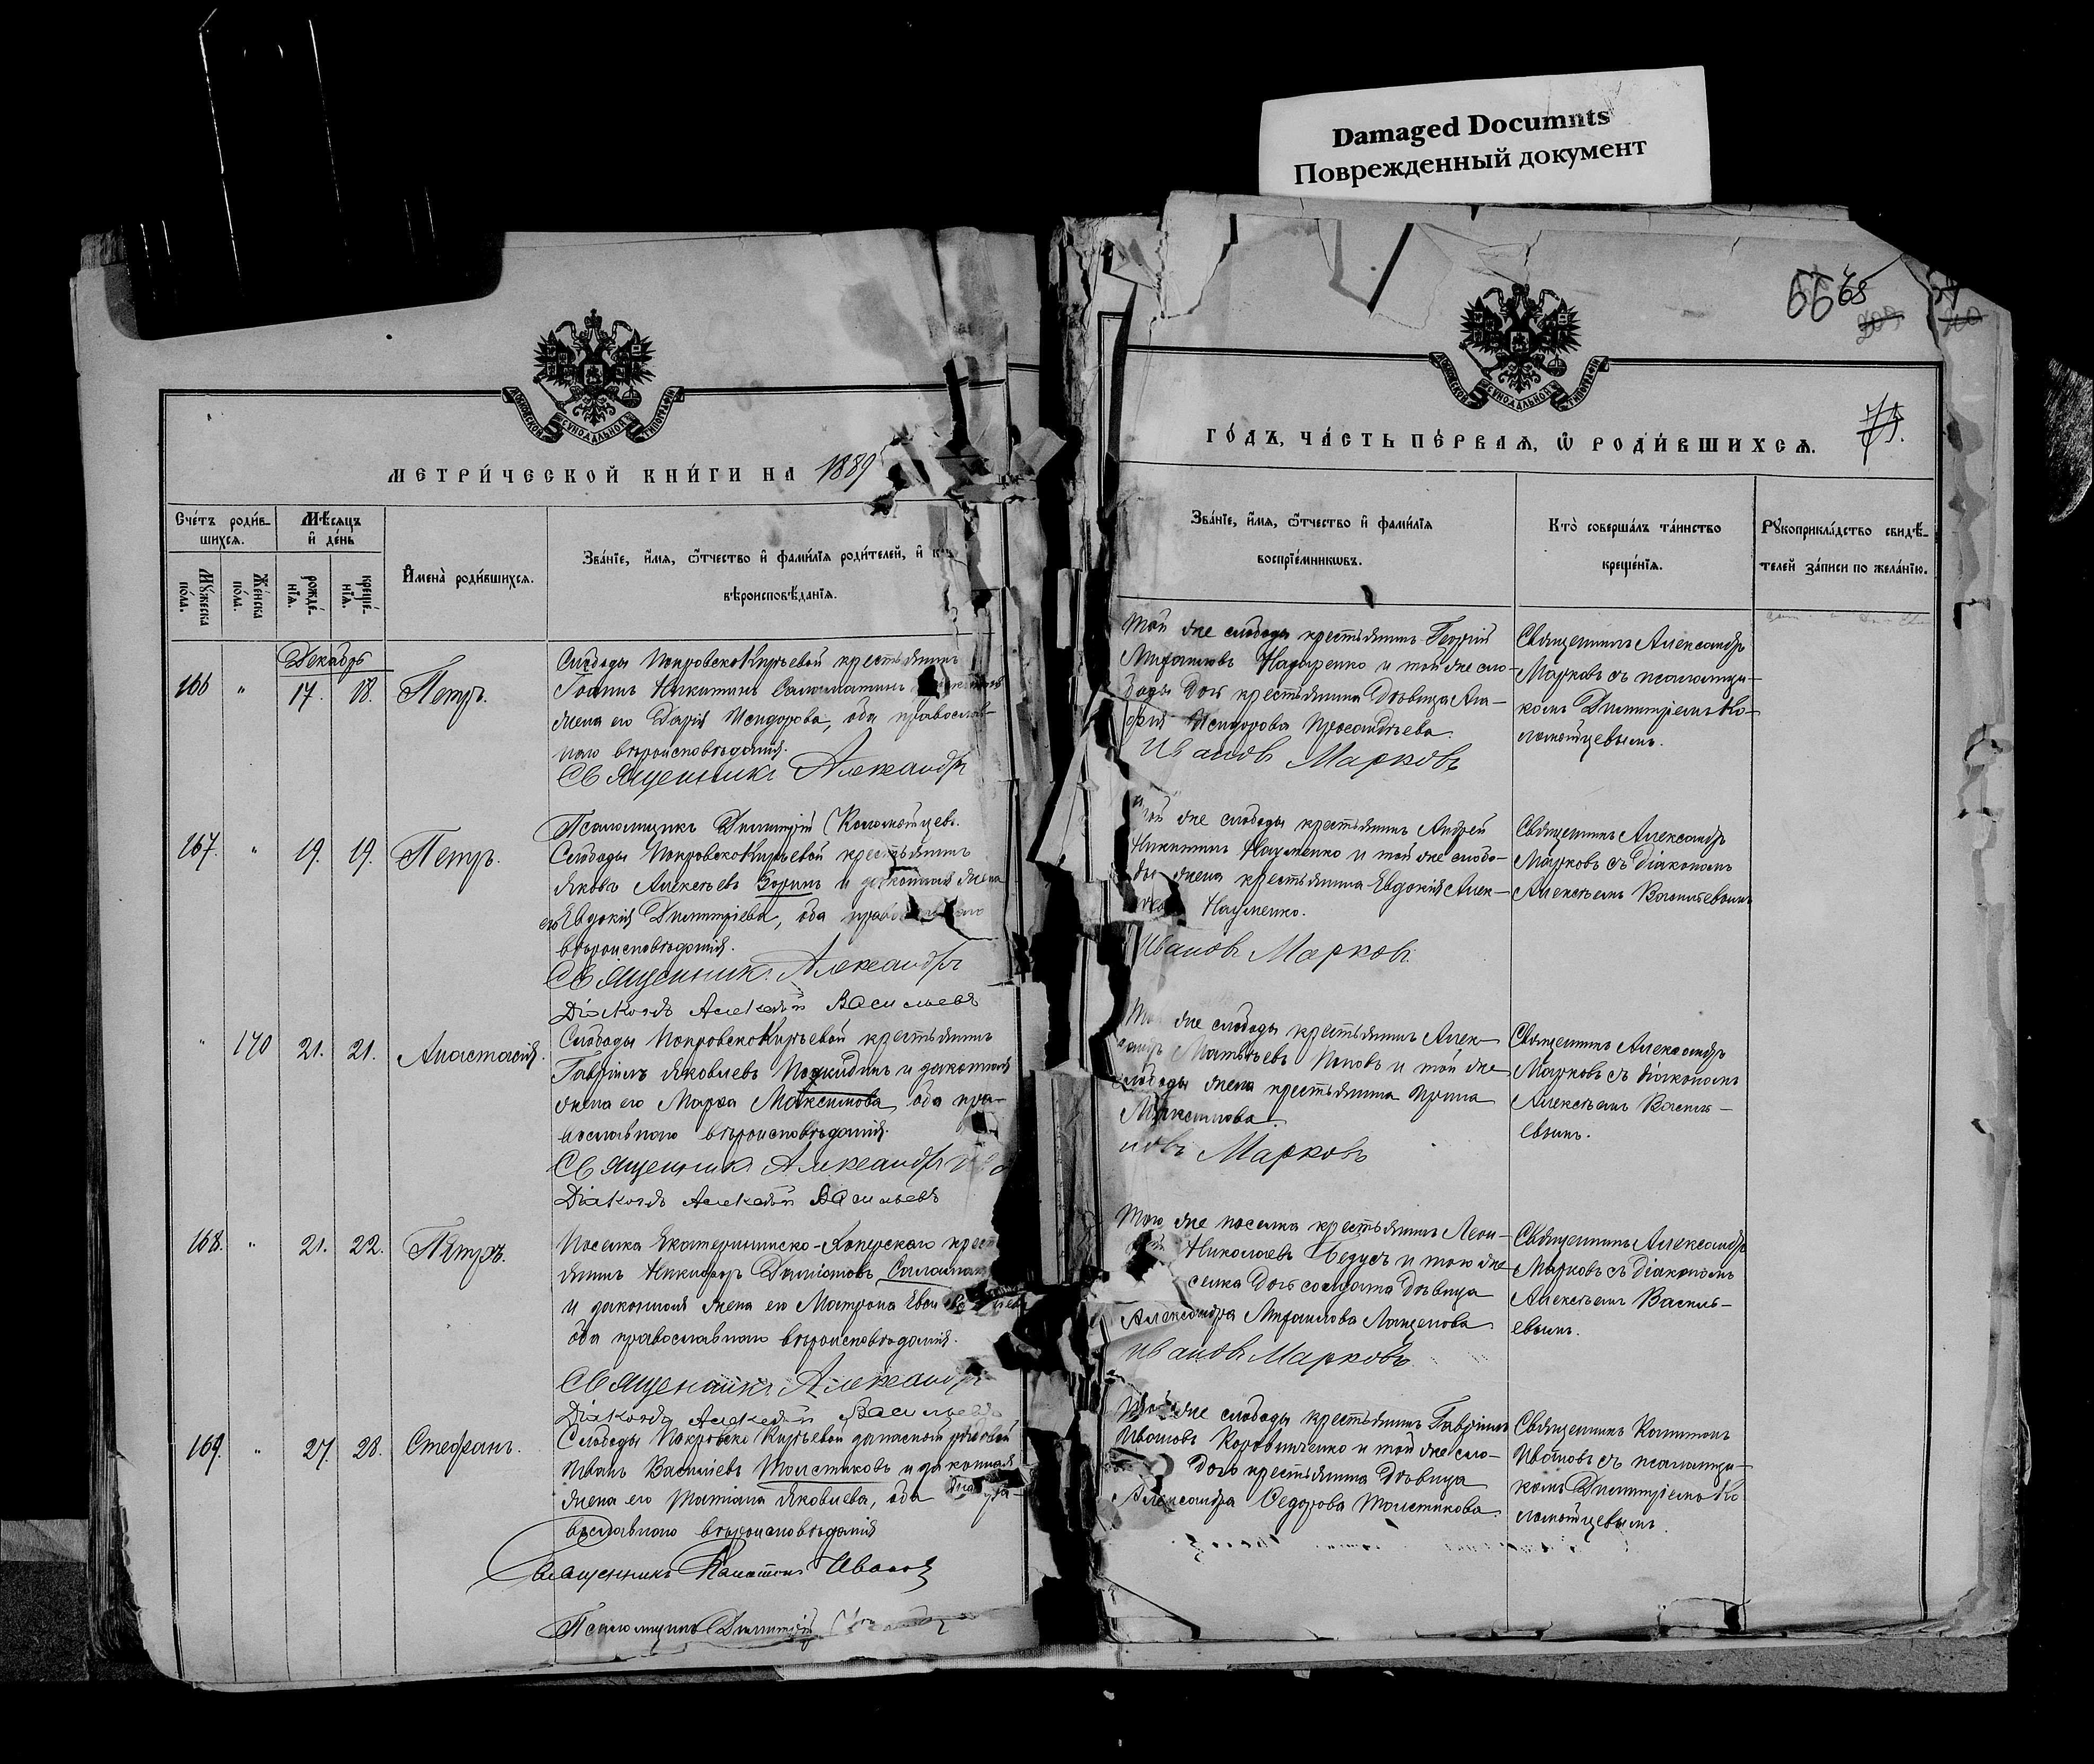 Damaged Documnts
Поврежденный документ
66 68
МОСКОВСКОЙ СѴНОДАЛЬНОЙ ТИПОГРАФІИ
МОСКОВСКОЙ СѴНОДАЛЬНОЙ ТИПОГРАФІИ
МЕТРИ́ЧЕСКОЙ КНИ́ГИ НА 1889
ГО́ДЪ, ЧА́СТЬ ПЕ́РВАѦ, Ѽ РОДИ́ВШИХСѦ.
75.
Сче́тъ роди́в-
шихсѧ.
Мѣ́сѧцъ
и҆ де́нь
Мꙋ́жеска
по́ла.
Же́нска
по́ла.
рожде́-
нїѧ.
креще́-
нїѧ.
И҆мена̀ роди́вшихсѧ.
Зва́нїе, и҆́мѧ, ѻ҆́тчество и҆ фами́лїѧ роди́телей, и҆
вѣроисповѣ́данїѧ.
Зва́нїе, и҆́мѧ, ѻ҆́тчество и҆ фами́лїѧ
воспрїе́мникѡвъ.
Кто̀ соверша́лъ та́инство
креще́нїѧ.
Рꙋкоприкла́дство свидѣ́-
телей за́писи по жела́нїю.
Декабрь
166 " 17. 18. Петръ.
Слободы ПокровскоКирѣевой крестьянинъ
Іоаннъ Никитинъ Саломатинъ
жена его Дарія Исидорова, оба православ-
наго вѣроисповѣданія.
Священникъ Александръ
Псаломщикъ Димитрій Коломойцевъ.
Той же слободы крестьянинъ Георгій
Михаиловъ Назаренко и той же сло-
боды дочь крестьянина дѣвица Ага-
фія Исидорова
Ивановъ Марковъ
Священникъ Александръ
Марковъ съ псаломщи-
комъ Димитріемъ Ко-
ломойцевымъ.
167. " 19. 19. Петръ.
Слободы ПокровскоКирѣевой крестьянинъ
Яковъ Алексѣевъ Зоринъ и законная жена
его Евдокія Димитріева, оба
вѣроисповѣданія.
Священникъ Александръ
Діаконъ Алексѣй Васильевъ
той же слободы крестьянинъ Андрей
Никитинъ Науменко и той же слобо-
ды жена крестьянина Евдокія Алек-
Науменко.
Ивановъ Марковъ.
Священникъ Александръ
Марковъ съ діакономъ
Алексѣемъ Васильевымъ
" 170 21. 21. Анастасія.
Слободы ПокровскоКирѣевой крестьянинъ
Гавріилъ Яковлевъ и законная
жена его Марѳа Максимова, оба пра-
вославнаго вѣроисповѣданія.
Священникъ Александръ
Діаконъ Алексѣй Васильевъ
же слободы крестьянинъ Алек-
Матвѣевъ Поповъ и той же
слободы жена крестьянина Ирина
Максимова.
новъ Марковъ
Священникъ Александръ
Марковъ съ діакономъ
Алексѣемъ Василь-
евымъ.
168. " 21. 22. Петръ.
Поселка Екатерининско-Хоперскаго
янинъ Никифоръ
и законная жена его Матрона
оба православнаго вѣроисповѣданія.
Священникъ Александръ
Діаконъ Алексѣй Васильевъ
Того же поселка крестьянинъ Леон-
Николаевъ и того же
селка дочь солдата дѣвица
Александра Михаилова Лащенова
Ивановъ Марковъ
Священникъ Александръ
Марковъ съ діакономъ
Алексѣемъ Василь-
евымъ.
169. " 27. 28. Стефанъ.
Слободы Покровско Кирѣевой запасной рядовой
Иванъ Васильевъ Толстиковъ и законная
жена его Татіана Яковлева, оба пра-
вославнаго вѣроисповѣданія
Священникъ Капитонъ Ивановъ
Псаломщикъ Димитрій
Той же слободы крестьянинъ Гавріилъ
Ивановъ и той же сло-
дочь крестьянина дѣвица
Александра Ѳедорова Толстикова.
Священникъ Капитонъ
Ивановъ съ псаломщи-
комъ Димитріемъ Ко
ломойцевымъ.